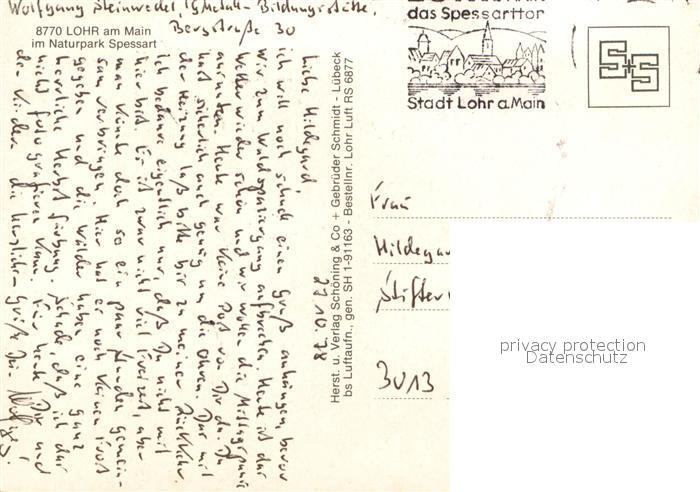 Wolfgang Steinwedel, IG Metall-Bildungsstätte,
Bergstraße 30
8770 LOHR am Main
im Naturpark Spessart
das Spessarttor
Stadt Lohr a. Main
S+S
Herst. u. Verlag Schöning & Co + Gebrüder Schmidt - Lübeck
bs Luftaufn., gen. SH 1-91163 - Bestellnr. Lohr Luft RS 6877
27.10.78
Liebe Hildegard!
ich will noch schnell einen Gruß anhängen, bevor
wir zum Waldspaziergang aufbrechen. Heute ist das
Wetter wieder schön und wir wollen die Mittagspause
ausnutzen. Heute war keine Post von Dir da. Du
hast sicherlich auch genug um die Ohren. Das mit
der Heizung laß bitte bis zu meiner Rückkehr.
Ich bedaure eigentlich nur, daß Du nicht mit
hier bist. Es ist zwar nicht viel Freizeit, aber
man könnte doch so ein paar Stunden gemein-
sam verbringen. Hier hat es noch keinen Frost
gegeben und die Wälder haben eine ganz
herrliche Herbstfärbung. Schade, daß ich das
nicht fotografieren kann. Für heute Dir und
den Kindern die herzlichsten Grüße Dein Wolfgang.
Frau
Hildegar
Stifter
3013
privacy protection
Datenschutz